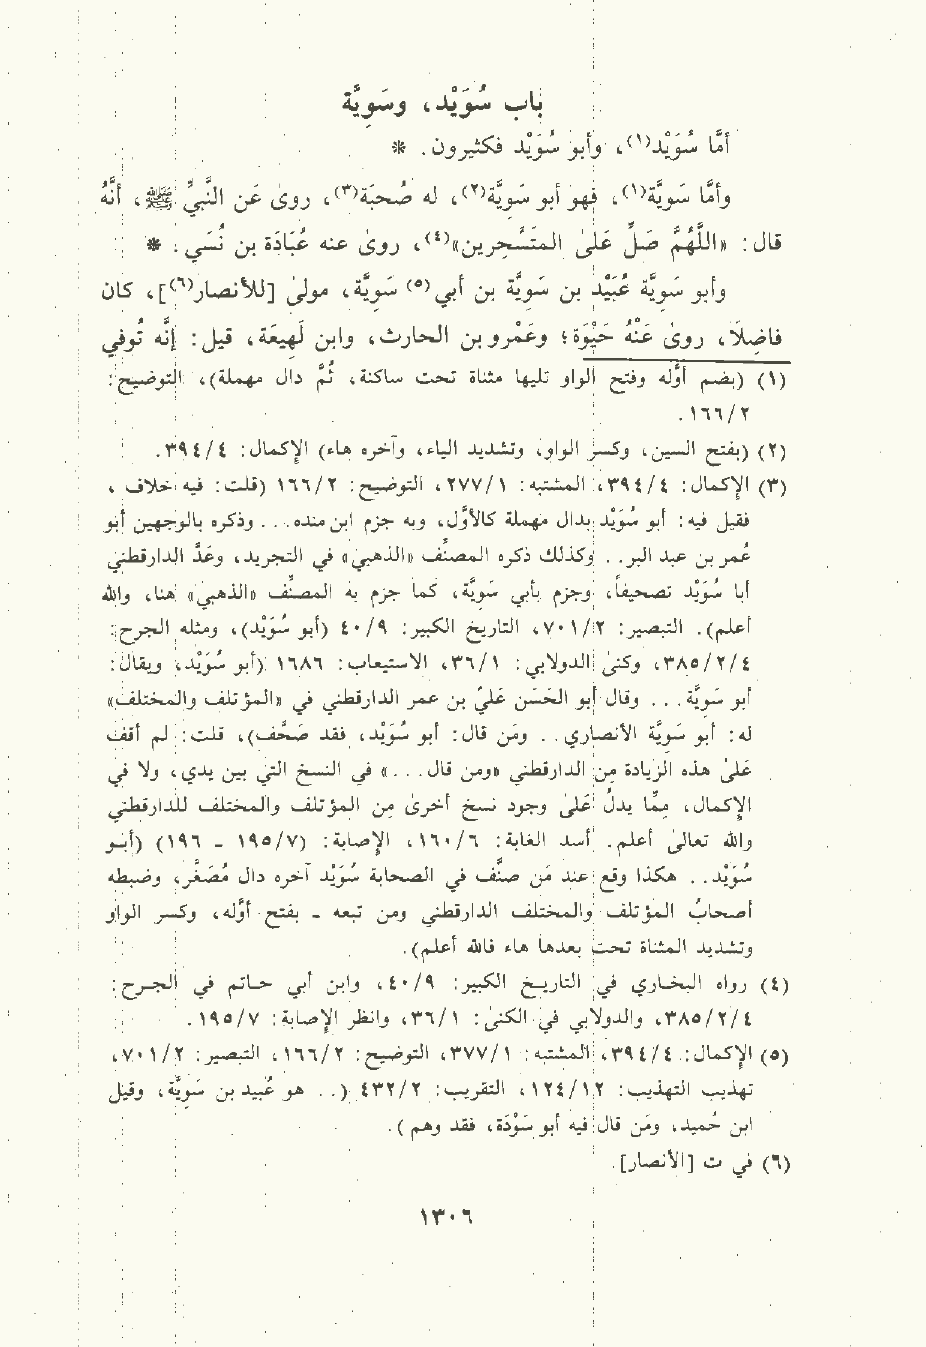 بَاب سُوَيْد، وسَوِيَّة
أمَّا سُوَيْد(١)، وأبو سُوَيْد فكثيرون. *
وأمَّا سَوِيَّة(١)، فهو أبو سَوِيَّة(٢)، له صُحبَة(٣)، روى عَن النَّبيِّ ﷺ، أنَّهُ
قال: «اللَّهُمَّ صَلِّ عَلَى المتَسَحِّرين»(٤)، روى عنه عُبَادَة بن نُسَي. *
وأبو سَوِيَّة عُبَيْد بن سَوِيَّة بن أبي(٥) سَوِيَّة، مولى [للأنصار(٦)]، كان
فاضِلاً، روى عَنْهُ حَيْوَة؛ وعَمْرو بن الحارث، وابن لَهِيعَة، قيل: إنَّه تُوفي
(١) (بضم أوَّله وفتح الواو تليها مثناة تحت ساكنة، ثُم دال مهملة)، التوضيح:
١٦٦/٢.
(٢) (بفتح السين، وكسر الواو، وتشديد الياء، وآخره هاء) الإكمال: ٣٩٤/٤.
(٣) الإكمال: ٣٩٤/٤، المشتبه: ٢٧٧/١، التوضيح: ١٦٦/٢ (قلت: فيه خلاف،
فقيل فيه: أبو سُوَيْد بدال مهملة كالأوَّل، وبه جزم ابن منده... وذكره بالوجهين أبو
عُمر بن عبد البر.. وكذلك ذكره المصنِّف «الذهبي» في التجريد، وعَدَّ الدارقطني
أبا سُوَيْد تصحيفاً، وجزم بأبي سَوِيَّة، كما جزم به المصنِّف «الذهبي» هنا، والله
أعلم). التبصير: ٧٠١/٢، التاريخ الكبير: ٤٠/٩ (أبو سُوَيْد)، ومثله الجرح:
٣٨٥/٢/٤، وكنى الدولابي: ٣٦/١، الاستيعاب: ١٦٨٦ (أبو سُوَيْد، ويقال:
أبو سَوِيَّة... وقال أبو الحَسَن عَليّ بن عمر الدارقطني في «المؤتلف والمختلف»
له: أبو سَوِيَّة الأنصاري.. ومَن قال: أبو سُوَيْد، فقد صَحَّف)، قلت: لم أقف
عَلَى هذه الزيادة مِن الدارقطني «ومن قال...» في النسخ التي بين يدي، ولا في
الإكمال، مِمَّا يدلُ عَلَى وجود نسخ أخرى مِن المؤتلف والمختلف للدارقطني
والله تعالى أعلم. أسد الغابة: ١٦٠/٦، الإصابة: (١٩٥/٧ - ١٩٦) (أبو
سُوَيْد.. هكذا وقع عند مَن صنَّف في الصحابة سُوَيْد آخره دال مُصَغَّر، وضبطه
أصحابُ المؤتلف والمختلف الدارقطني ومن تبعه - بفتح أوَّله، وكسر الواو
وتشديد المثناة تحت بعدها هاء فالله أعلم).
(٤) رواه البخاري في التاريخ الكبير: ٤٠/٩، وابن أبي حاتم في الجرح:
٣٨٥/٢/٤، والدولابي في الكنى: ٣٦/١، وانظر الإصابة: ١٩٥/٧.
(٥) الإكمال: ٣٩٤/٤، المشتبه: ٣٧٧/١، التوضيح: ١٦٦/٢، التبصير: ٧٠١/٢،
تهذيب التهذيب: ١٢٤/١٢، التقريب: ٤٣٢/٢ (.. هو عُبيد بن سَوِيَّة، وقيل
ابن حُميد، ومَن قال فيه أبو سَوْدَة، فقد وهم).
(٦) في ت [الأنصار].
١٣٠٦